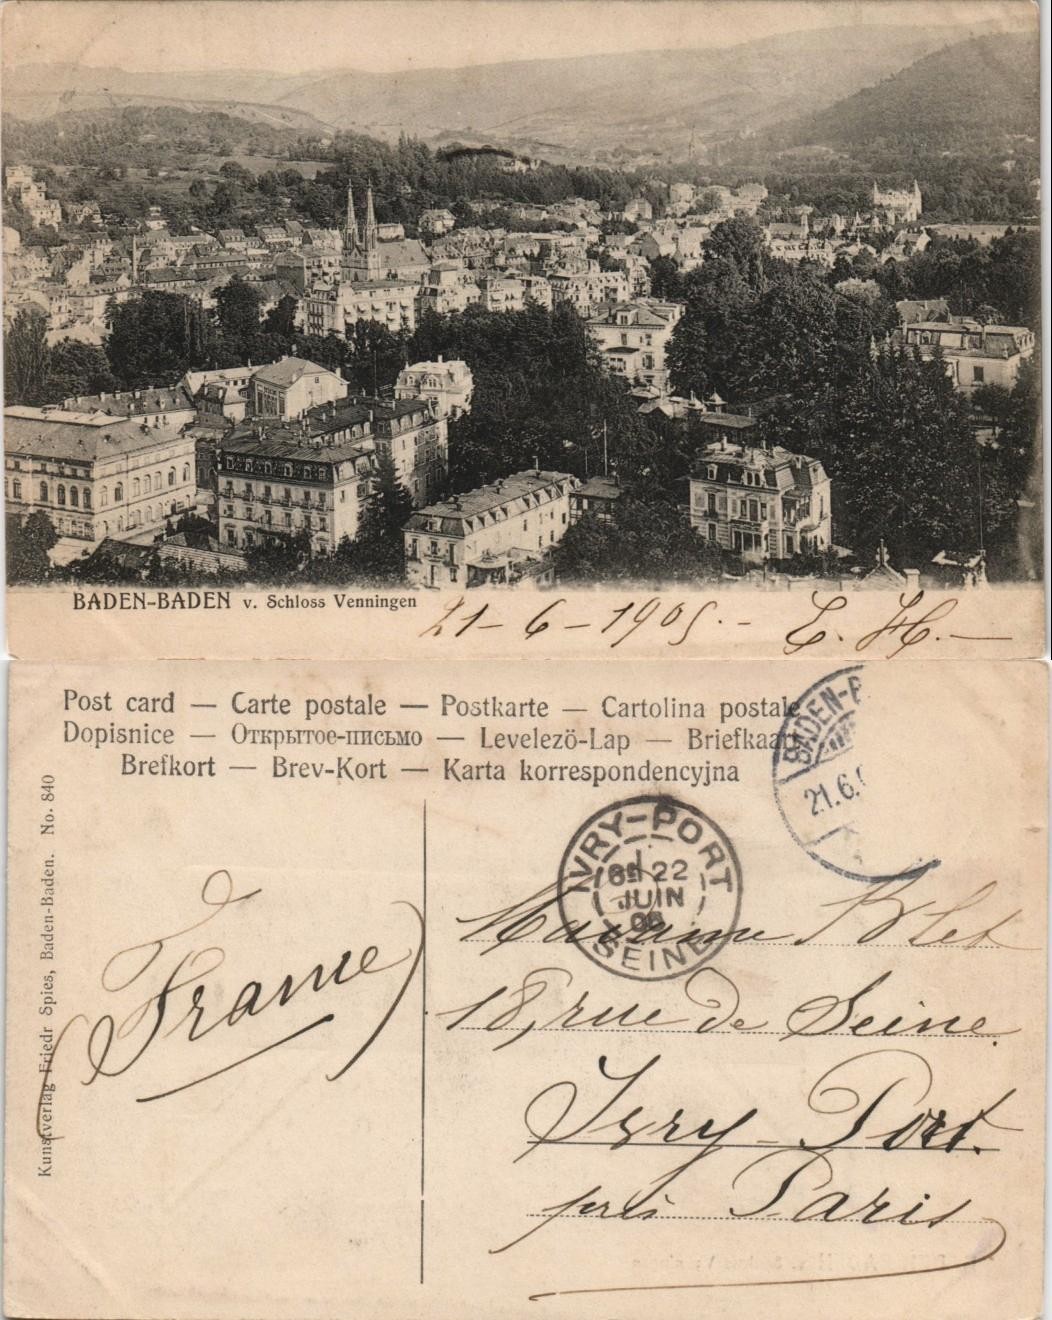 BADEN-BADEN v. Schloss Venningen
21-6-1905.- E. H.-
Post card — Carte postale — Postkarte — Cartolina postale
Dopisnice — Открытое-письмо — Levelezö-Lap — Briefkaart
Brefkort — Brev-Kort — Karta korrespondencyjna
BADEN-B
21.6.
IVRY-PORT
22
JUIN
SEINE
Kunstverlag Friedr Spies, Baden-Baden. No. 840
(France)
Madame Blet
18, rue de Seine.
Ivry-Port.
près Paris